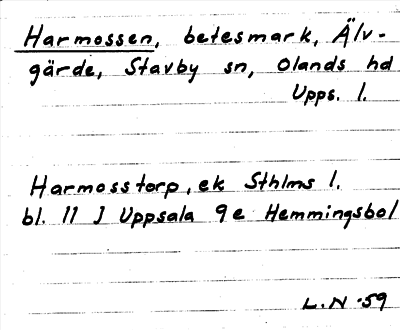 Harmossen, betesmark, Älv-
gärde, Stavby sn, Olands hd
Upps. l.
Harmosstorp, ek Sthlms l.
bl. 11 J Uppsala 9e Hemmingsbol
L.N -59